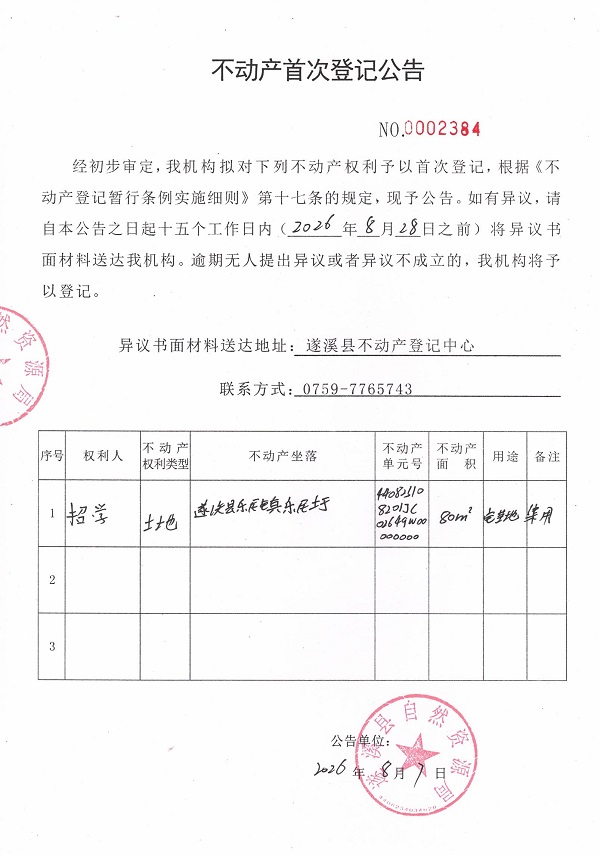 不动产首次登记公告
NO.0002384
经初步审定，我机构拟对下列不动产权利予以首次登记，根据《不
动产登记暂行条例实施细则》第十七条的规定，现予公告。如有异议，请
自本公告之日起十五个工作日内（2026年8月28日之前）将异议书
面材料送达我机构。逾期无人提出异议或者异议不成立的，我机构将予
以登记。
异议书面材料送达地址：遂溪县不动产登记中心
联系方式：0759-7765743
序号 权利人 不动产权利类型 不动产坐落 不动产单元号 不动产面积 用途 备注
1 招学 土地 遂溪县乐民镇乐民圩 80m² 宅基地 集用
2
3
公告单位：
2026年8月7日
遂溪县自然资源局
然资源局